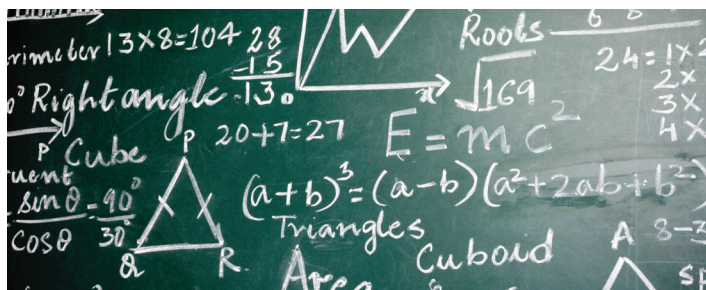 rimeter 13×8=104
28
15
13.
Roots
√169
24=1×2
2×
3×
4×
Right angle
20+7=27
E=mc²
P Cube
uent
sin θ = 90°
cos θ 30°
P
Q R
(a+b)³=(a-b)(a²+2ab+b²)
Triangles
Cuboid
A 8-3
Area
sp